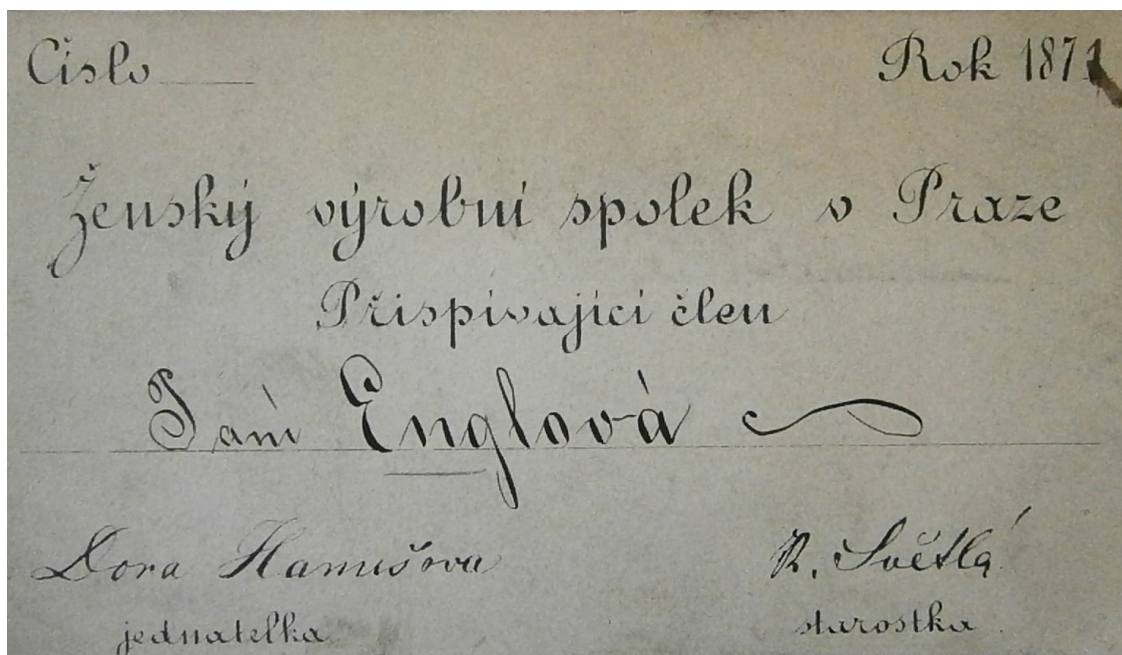 Číslo Rok 1871
Ženský výrobní spolek v Praze
Přispívající člen
Paní Englová
Dora Hanušova R. Světlá
jednatelka starostka